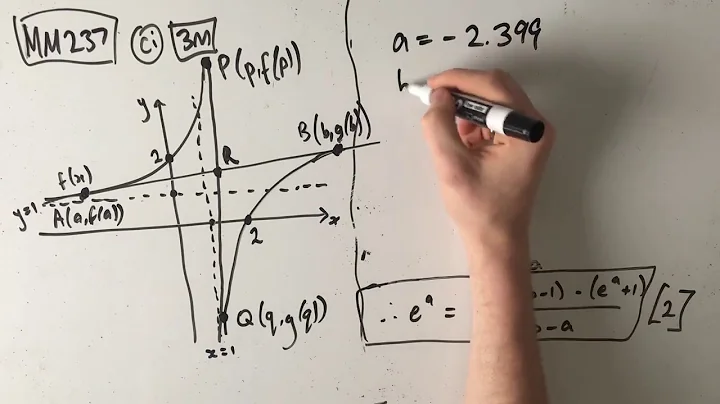 MM237 (ci) 3M
P(p,f(p))
y
B(b,g(b))
2
R
f(x)
y=1
A(a,f(a))
x
2
Q(q,g(q))
x=1
a = -2.399
b
∴ e^a = -1) - (e^a+1) [2]
-a